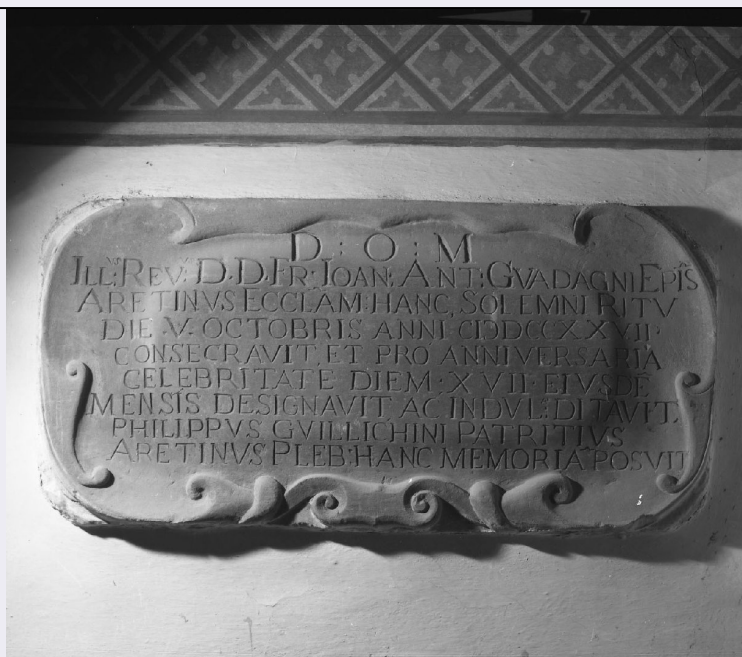 D : O : M
ILL:^S REV: D·D FR: IOAN: ANT: GVADAGNI EPI^S
ARETINVS ECCLAM HANC, SOLEMNI RITV
DIE·V· OCTOBRIS ANNI CIƆDCCXXVII·
CONSECRAVIT, ET PRO ANNIVERSARIA
CELEBRITATE DIEM·XVII·EIVSDE
MENSIS DESIGNAVIT AC INDVL: DITAVIT,
PHILIPPVS GVILLICHINI PATRITIVS
ARETINVS PLEB: HANC MEMORIA POSVIT